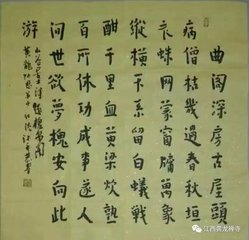 曲閣深房古屋頭
病僧枯幾過春秋垣
衣蛛网蒙窗牖萬象
縱橫不系留白蟻戰
酣千里血黄粱炊熟
百年休功成事遂人
间世欲夢槐安向此
游
江西黄龙禅寺